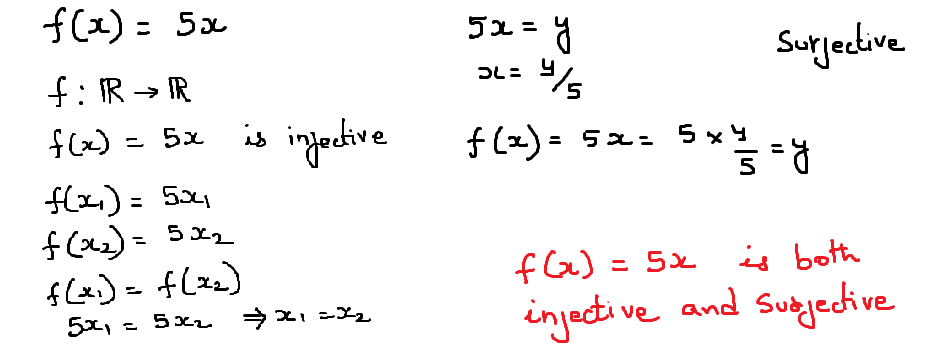 f(x) = 5x
f : ℝ → ℝ
f(x) = 5x is injective
f(x₁) = 5x₁
f(x₂) = 5x₂
f(x₁) = f(x₂)
5x₁ = 5x₂ ⇒ x₁ = x₂
5x = y
x = y/5
Surjective
f(x) = 5x = 5 × y/5 = y
f(x) = 5x is both
injective and Surjective